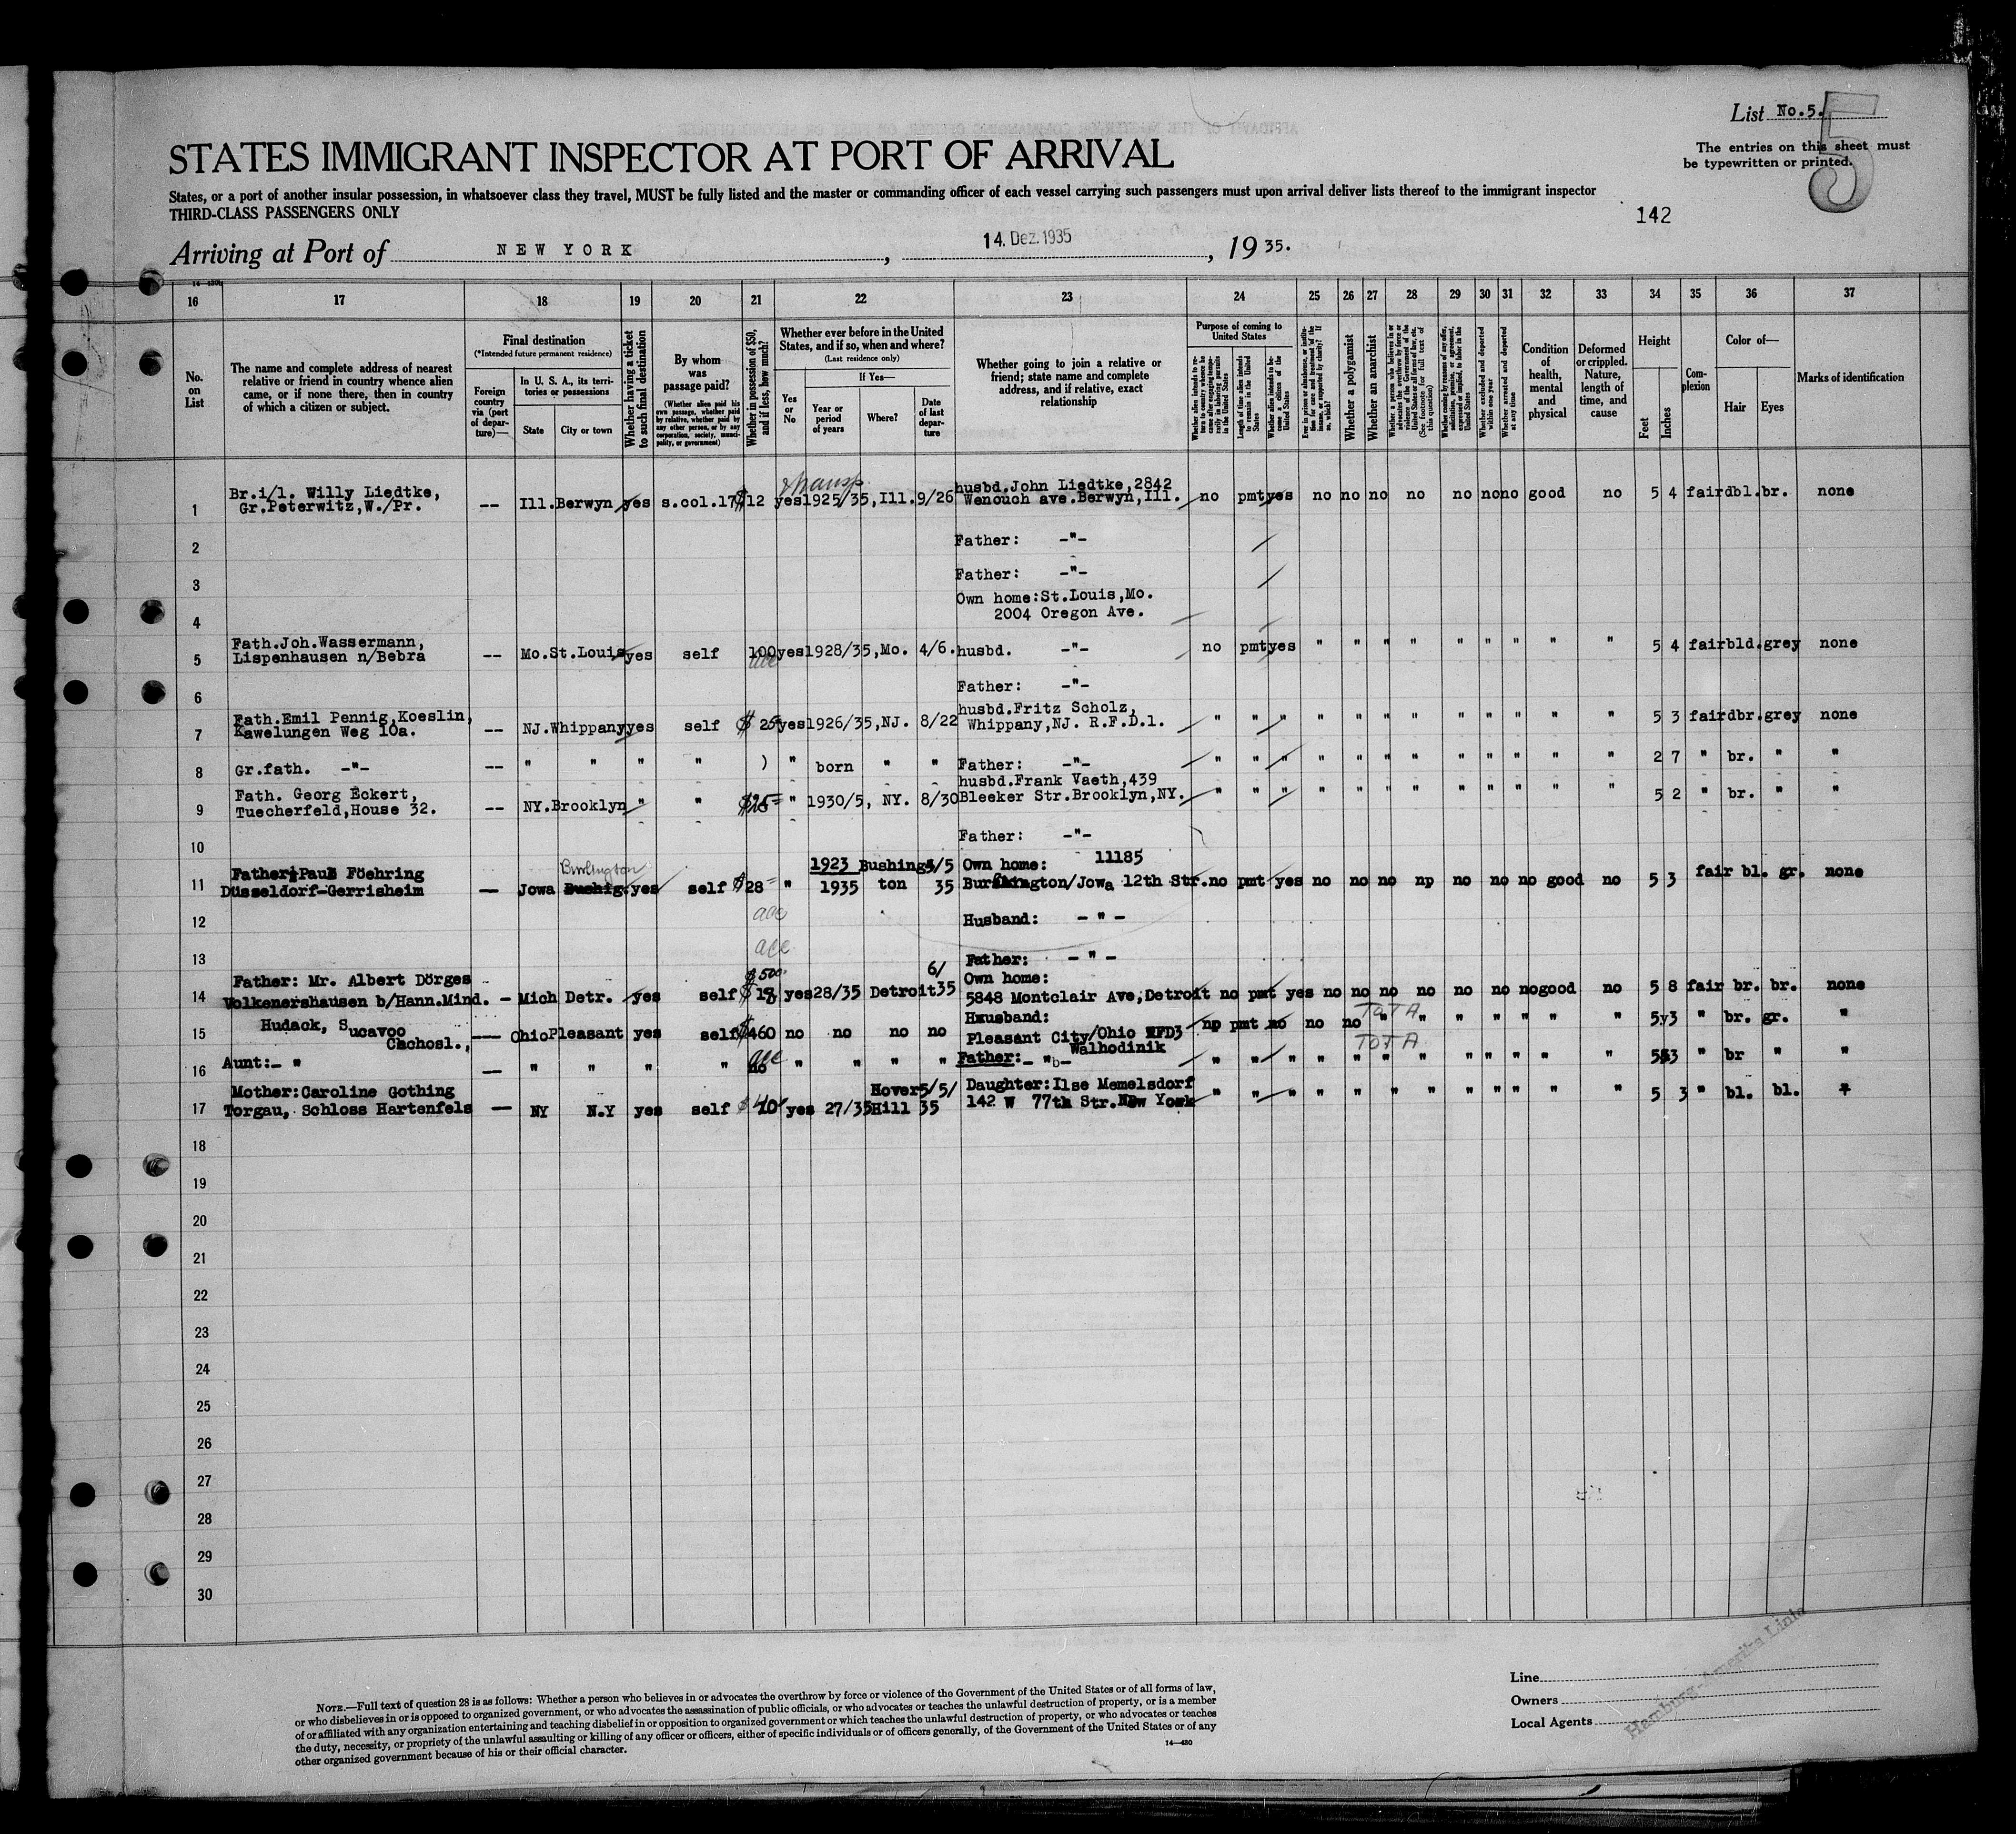 List No.5.
5
The entries on this sheet must
be typewritten or printed.
STATES IMMIGRANT INSPECTOR AT PORT OF ARRIVAL
States, or a port of another insular possession, in whatsoever class they travel, MUST be fully listed and the master or commanding officer of each vessel carrying such passengers must upon arrival deliver lists thereof to the immigrant inspector
THIRD-CLASS PASSENGERS ONLY
142
Arriving at Port of NEW YORK , 14. Dez. 1935 , 19 35.
16 17 18 19 20 21 22 23 24 25 26 27 28 29 30 31 32 33 34 35 36 37
No. on List
The name and complete address of nearest relative or friend in country whence alien came, or if none there, then in country of which a citizen or subject.
Final destination
(*Intended future permanent residence)
Foreign country via (port of departure)—
In U. S. A., its territories or possessions
State
City or town
Whether having a ticket to such final destination
By whom was passage paid?
(Whether alien paid his own passage, whether paid by relative, whether paid by any other person, or by any corporation, society, municipality, or government)
Whether in possession of $50, and if less, how much?
Whether ever before in the United States, and if so, when and where?
(Last residence only)
Yes or No
If Yes—
Year or period of years
Where?
Date of last departure
Whether going to join a relative or friend; state name and complete address, and if relative, exact relationship
Purpose of coming to United States
Length of time alien intends to remain in the United States
Whether alien intends to become a citizen of the United States
Whether a polygamist
Whether an anarchist
(See footnote for full text of this question)
Whether excluded and deported within one year
Whether arrested and deported at any time
Condition of health, mental and physical
Deformed or crippled. Nature, length of time, and cause
Height
Feet
Inches
Complexion
Color of—
Hair
Eyes
Marks of identification
1 Br.i/l. Willy Liedtke, Gr.Peterwitz,W./Pr. -- Ill. Berwyn yes s.col.17 $12 yes 1925/35,Ill. 9/26 husbd.John Liedtke,2842 Wenouch ave.Berwyn,Ill. no pmt yes no no no no no no no good no 5 4 fair dbl. br. none
2 Father: -"-
3 Father: -"-
4 Own home:St.Louis,Mo. 2004 Oregon Ave.
5 Fath.Joh.Wassermann, Lispenhausen n/Bebra -- Mo. St.Louis yes self 100 yes 1928/35,Mo. 4/6. husbd. -"- no pmt yes " " " " " " " " " 5 4 fair bld. grey none
6 Father: -"-
7 Fath.Emil Pennig,Koeslin, Kawelungen Weg 10a. -- NJ. Whippany yes self $ 25 yes 1926/35,NJ. 8/22 husbd.Fritz Scholz, Whippany,NJ. R.F.D.1. " " " " " " " " " " " " 5 3 fair dbr. grey none
8 Gr.fath. -"- -- " " " " ) " born " " Father: -"- " " " " " " " " " " " " 2 7 " br. " "
9 Fath. Georg Eckert, Tuecherfeld,House 32. -- NY. Brooklyn " " $25 " 1930/5, NY. 8/30 husbd.Frank Vaeth,439 Bleeker Str.Brooklyn,NY. " " " " " " " " " " " " 5 2 " br. " "
10 Father: -"-
11 Father: Paul Föehring Düsseldorf-Gerrisheim — Jowa Burlington yes self $28 " 1923 1935 Bushington 5/5 35 Own home: 11185 Burlington/Jowa 12th Str. no pmt yes no no no np no no no good no 5 3 fair bl. gr. none
12 Husband: - " -
13 Father: - " -
14 Father: Mr. Albert Dörges Volkenershausen b/Hann.Mind. - Mich Detr. yes self $500 yes 28/35 Detroit 6/35 Own home: 5848 Montclair Ave,Detroit no pmt yes no no no no no no no good no 5 8 fair br. br. none
15 Hudack, Sucavoo Cachosl., --- Ohio Pleasant yes self $460 no no no no Husband: Pleasant City/Ohio RFD3 no pmt no no no " " " " " " " 5 3 " br. gr. "
16 Aunt:- " — " " " " no " " " " Father: - " - Walhodinik " " " " " " " " " " " 5 3 " br " "
17 Mother: Caroline Gothing Torgau, Schloss Hartenfels — NY N.Y yes self $ 40 yes 27/35 Hover Hill 5/5/35 Daughter: Ilse Memelsdorf 142 W 77th Str. New York " " " " " " " " " " " " 5 3 " bl. bl.
18
19
20
21
22
23
24
25
26
27
28
29
30
NOTE.—Full text of question 28 is as follows: Whether a person who believes in or advocates the overthrow by force or violence of the Government of the United States or of all forms of law,
or who disbelieves in or is opposed to organized government, or who advocates the assassination of public officials, or who advocates or teaches the unlawful destruction of property, or is a member
of or affiliated with any organization entertaining and teaching disbelief in or opposition to organized government or which teaches the unlawful destruction of property, or who advocates or teaches
the duty, necessity, or propriety of the unlawful assaulting or killing of any officer or officers, either of specific individuals or of officers generally, of the Government of the United States or of any
other organized government because of his or their official character.
14—430
Line
Owners
Local Agents
Hamburg-Amerika Linie